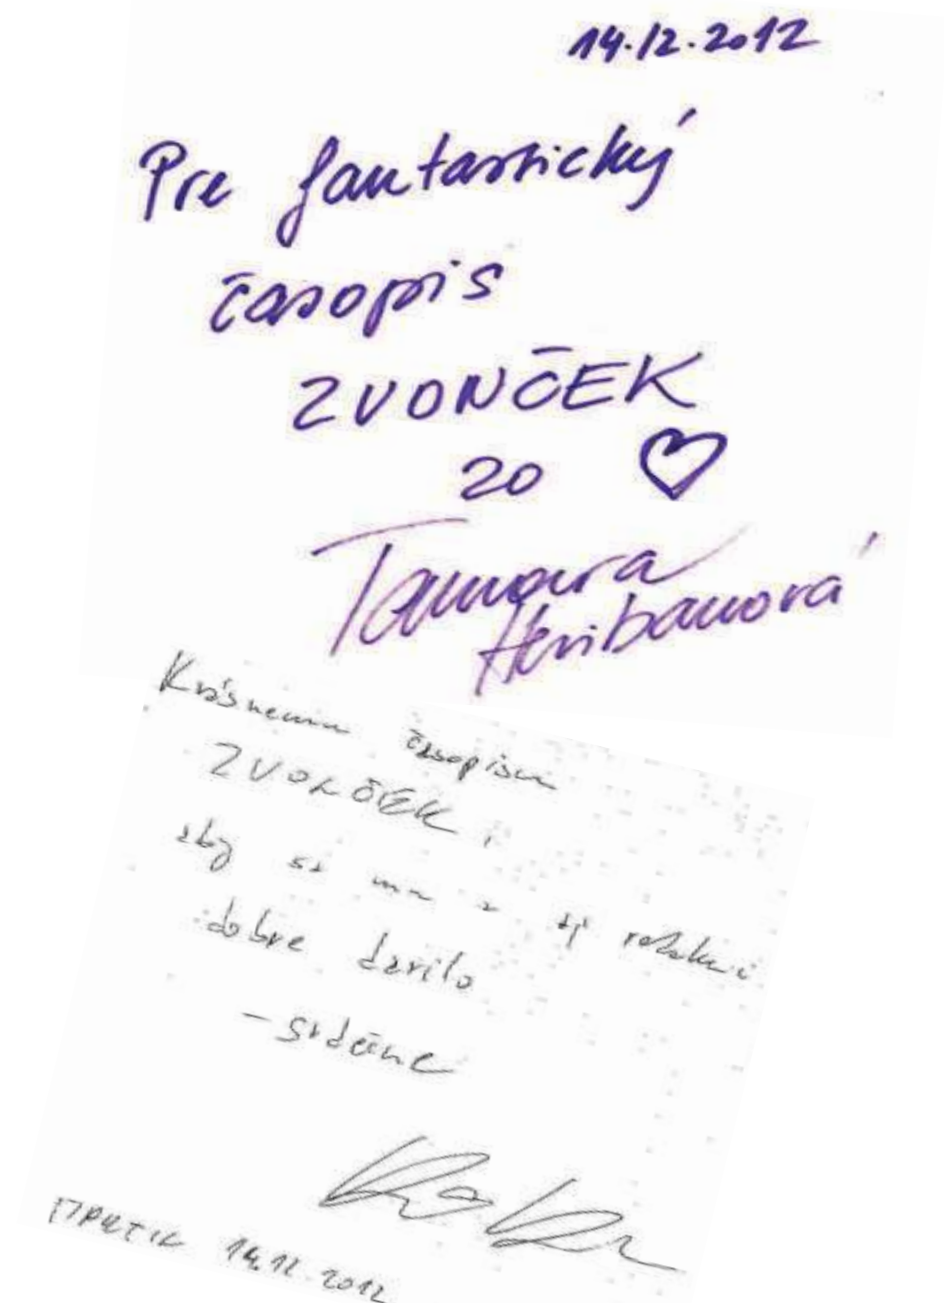 14.12.2012
Pre fantastický
časopis
ZVONČEK
20 ♡
Tamara
Heribanová
Krásnemu časopisu
ZVONČEK,
aby sa mu a ej redakcii
dobre darilo
- srdečne
14.12.2012